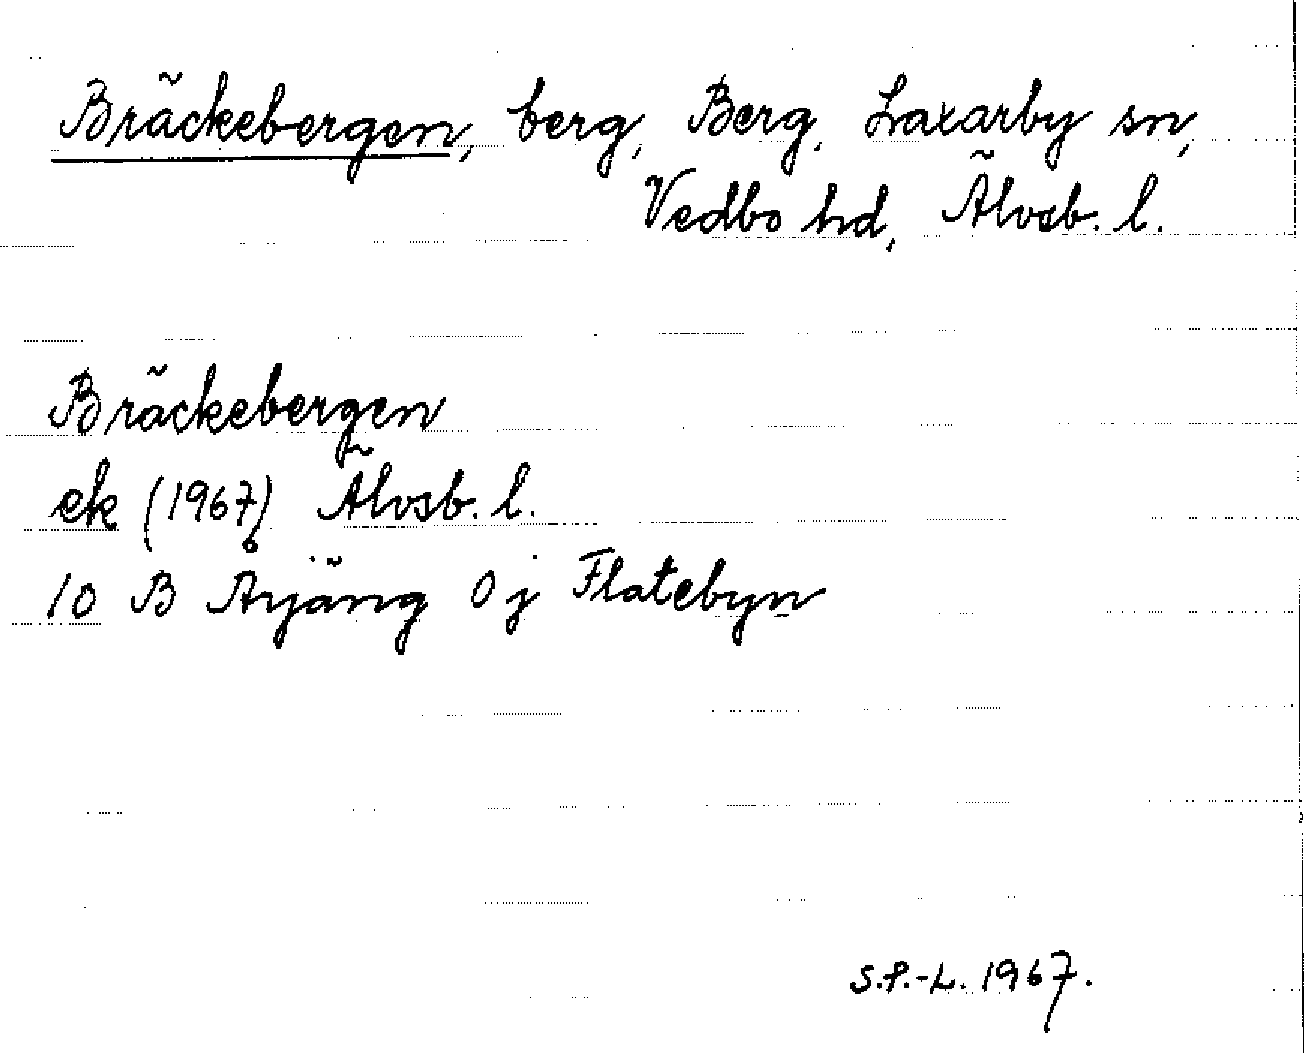 Bräckebergen, berg, Berg, Laxarby sn,
Vedbo hd, Älvsb. l.
Bräckebergen
ek (1967) Älvsb. l.
10 B Årjäng 0 j Flatebyn
S.P.-L. 1967.